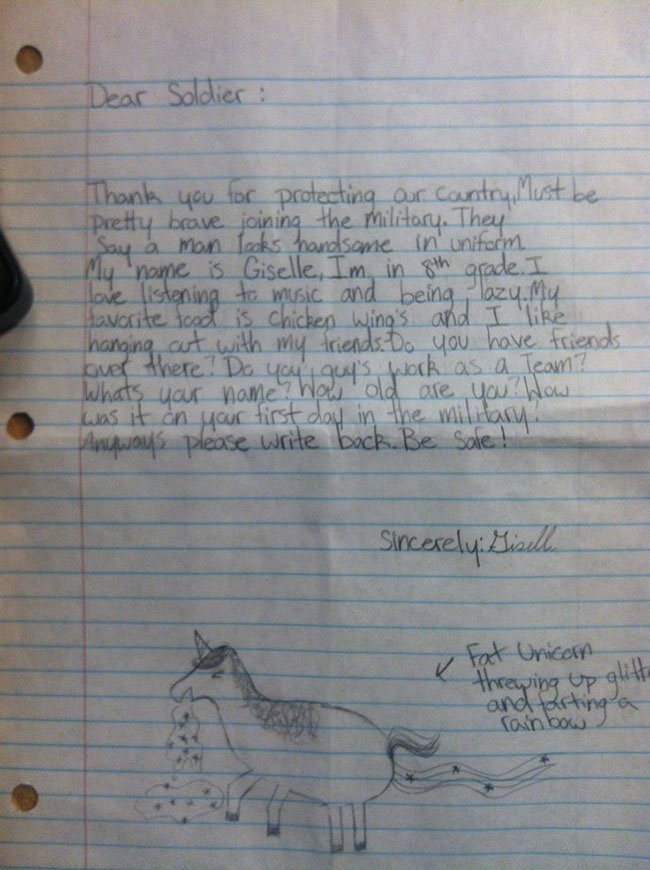 Dear Soldier:
Thank you for protecting our country, Must be
pretty brave joining the military. They
say a man looks handsome in uniform.
My name is Giselle, Im in 8th grade. I
love listening to music and being lazy. My
favorite food is chicken wing's and I like
hanging out with my friends. Do you have friends
over there? Do you guy's work as a Team?
Whats your name? How old are you? How
was it on your first day in the military?
Anyways please write back. Be safe!
Sincerely: Giselle
Fat Unicorn
threwing up glitte
and farting a
rainbow